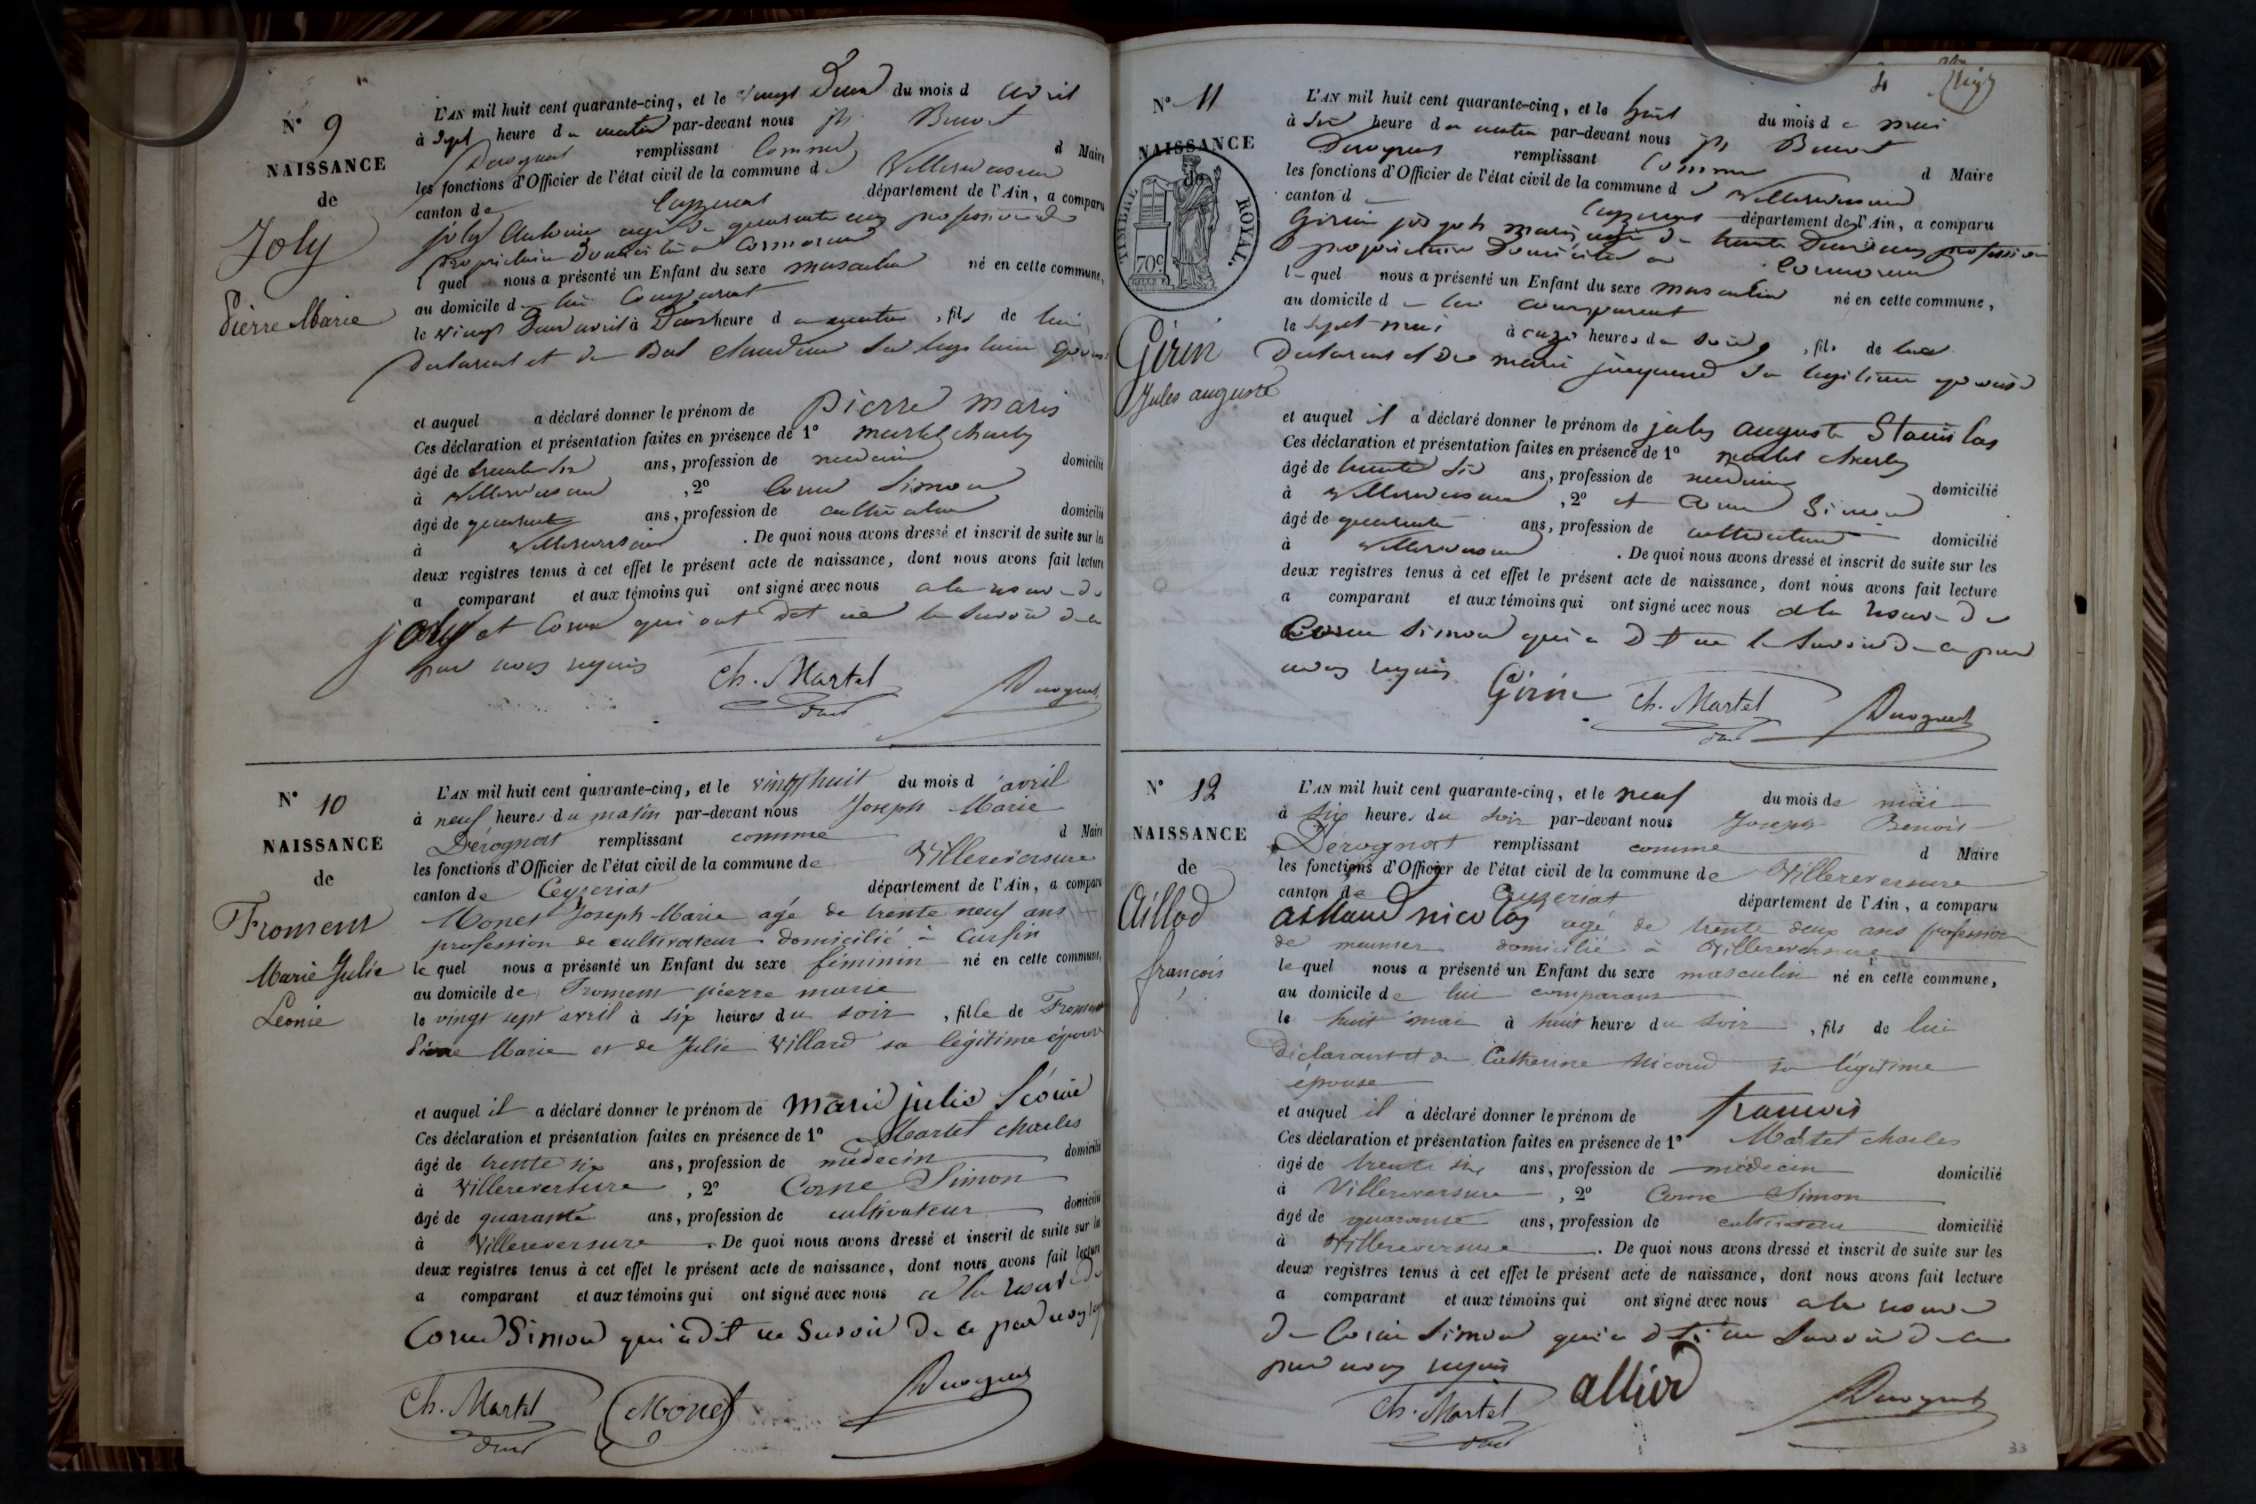 N° 9
NAISSANCE
de
Joly
Pierre Marie
L'AN mil huit cent quarante-cinq, et le vingt deux du mois d avril
à sept heure du matin par-devant nous jh Benoit
Derognat remplissant comme d Maire
les fonctions d'Officier de l'état civil de la commune de Villereversure
canton de Ceyzeriat département de l'Ain, a comparu
joly Antoine agé de quarante cinq profession de
propriétaire domicilié a Cormoreau
l quel nous a présenté un Enfant du sexe masculin né en cette commune,
au domicile de lui comparant
le vingt deux avril à deux heure du matin, fils de lui
declarant et de claudine sa legitime epouse
et auquel a déclaré donner le prénom de pierre marie
Ces déclaration et présentation faites en présence de 1° martel charles
âgé de trente six ans, profession de medecin domicilié
à Villereversure, 2° Corne Simon
âgé de quarante ans, profession de cultivateur domicilié
à Villereversure. De quoi nous avons dressé et inscrit de suite sur les
deux registres tenus à cet effet le présent acte de naissance, dont nous avons fait lecture
a comparant et aux témoins qui ont signé avec nous a la reserve de
joly et Corne qui ont dit ne le savoir de ce
par nous requis
Ch. Martel
Derognat
N° 10
NAISSANCE
de
Froment
Marie Julie
Léonie
L'AN mil huit cent quarante-cinq, et le vingt huit du mois d'avril
à neuf heures du matin par-devant nous Joseph Marie
Dérognat remplissant comme d Maire
les fonctions d'Officier de l'état civil de la commune de Villereversure
canton de Ceyzeriat département de l'Ain, a comparu
Monet Joseph Marie agé de trente neuf ans
profession de cultivateur domicilié à Cursin
le quel nous a présenté un Enfant du sexe féminin né en cette commune,
au domicile de Froment pierre marie
le vingt sept avril à six heures du soir, fille de Froment
Pierre Marie et de Julie Villard sa légitime épouse
et auquel il a déclaré donner le prénom de marie julie Léonie
Ces déclaration et présentation faites en présence de 1° Martel charles
âgé de trente six ans, profession de médecin domicilié
à Villereversure, 2° Corne Simon
âgé de quarante ans, profession de cultivateur domicilié
à Villereversure. De quoi nous avons dressé et inscrit de suite sur les
deux registres tenus à cet effet le présent acte de naissance, dont nous avons fait lecture
a comparant et aux témoins qui ont signé avec nous a la reserve de
Corne Simon qui a dit ne savoir de ce par nous requis
Ch. Martel
Monet
Derognat
4
N° 11
NAISSANCE
TIMBRE ROYAL.
70c
Girin
Jules auguste
L'AN mil huit cent quarante-cinq, et le huit du mois de mai
à six heure du matin par-devant nous jh Benoit
Derognat remplissant comme d Maire
les fonctions d'Officier de l'état civil de la commune de Villereversure
canton de Ceyzeriat département de l'Ain, a comparu
Girin joseph marie agé de trente deux ans profession
propriétaire domicilié a Cormoreau
l quel nous a présenté un Enfant du sexe masculin né en cette commune,
au domicile de lui comparant
le sept mai à onze heures du soir, fils de lui
declarant et de marie sa legitime epouse
et auquel il a déclaré donner le prénom de jules auguste Stanislas
Ces déclaration et présentation faites en présence de 1° martel charles
âgé de trente six ans, profession de medecin domicilié
à Villereversure, 2° et Corne Simon
âgé de quarante ans, profession de cultivateur domicilié
à Villereversure. De quoi nous avons dressé et inscrit de suite sur les
deux registres tenus à cet effet le présent acte de naissance, dont nous avons fait lecture
a comparant et aux témoins qui ont signé avec nous a la reserve de
Corne Simon qui a dit ne le savoir de ce par
nous requis
Girin
Ch. Martel
Derognat
N° 12
NAISSANCE
de
Aillod
françois
L'AN mil huit cent quarante-cinq, et le neuf du mois de mai
à six heures du soir par-devant nous Joseph Benoit
Dérognat remplissant comme d Maire
les fonctions d'Officier de l'état civil de la commune de Villereversure
canton de Ceyzeriat département de l'Ain, a comparu
aillaud nicolas agé de trente deux ans profession
de meunier domicilié à Villereversure
le quel nous a présenté un Enfant du sexe masculin né en cette commune,
au domicile de lui comparant
le huit mai à huit heures du soir, fils de lui
déclarant et de Catherine Nicoud sa légitime
épouse
et auquel il a déclaré donner le prénom de francois
Ces déclaration et présentation faites en présence de 1° Martel charles
âgé de trente six ans, profession de médecin domicilié
à Villereversure, 2° Corne Simon
âgé de quarante ans, profession de cultivateur domicilié
à Villereversure. De quoi nous avons dressé et inscrit de suite sur les
deux registres tenus à cet effet le présent acte de naissance, dont nous avons fait lecture
a comparant et aux témoins qui ont signé avec nous a la reserve
de Corne Simon qui a dit ne savoir de ce
par nous requis
Ch. Martel
alliod
Derognat
33